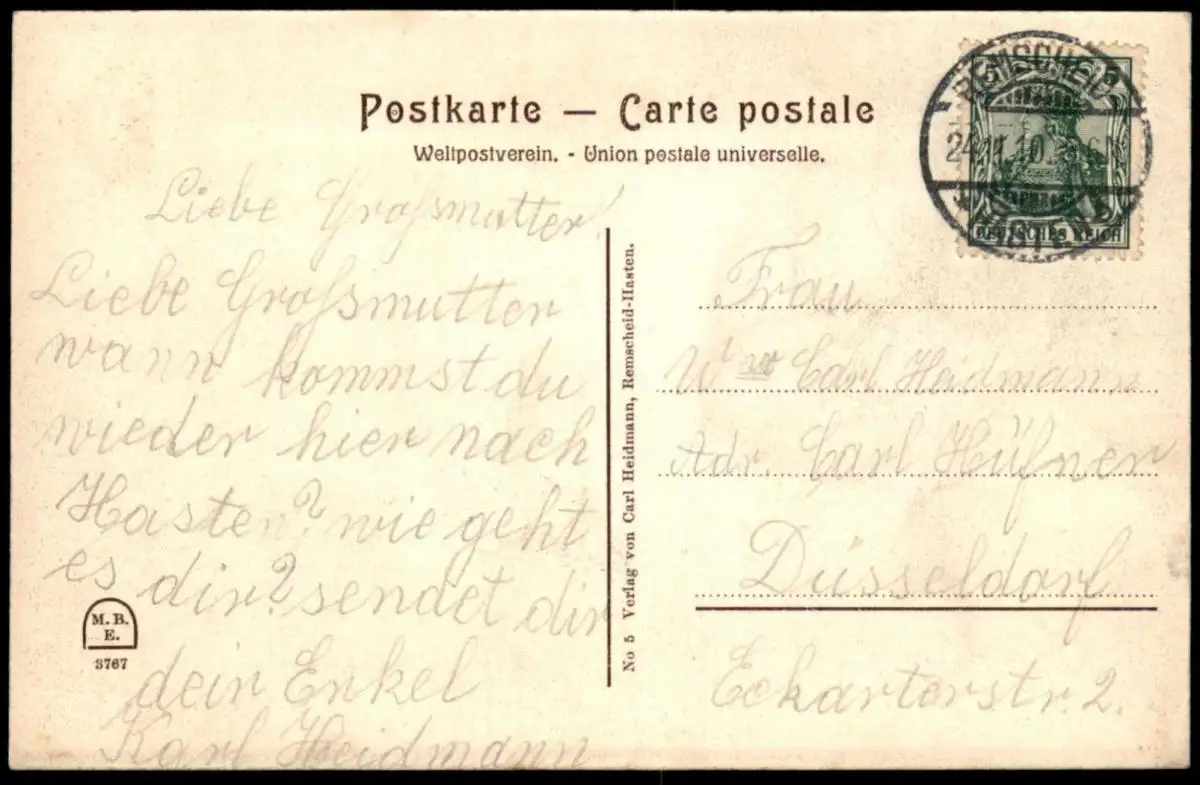 Postkarte — Carte postale
Weltpostverein. - Union postale universelle.
REMSCHEID
5 5
DEUTSCHES REICH
Liebe Großmutter!
Liebe Großmutter
wann kommst du
wieder hier nach
Hasten? wie geht
es dir? sendet dir
dein Enkel
Karl Heidmann
M. B.
E.
3767
No 5 Verlag von Carl Heidmann, Remscheid-Hasten.
Frau
Wwe Carl Heidmann
Adr. Carl Hüfner
Düsseldorf
Eckarterstr. 2.